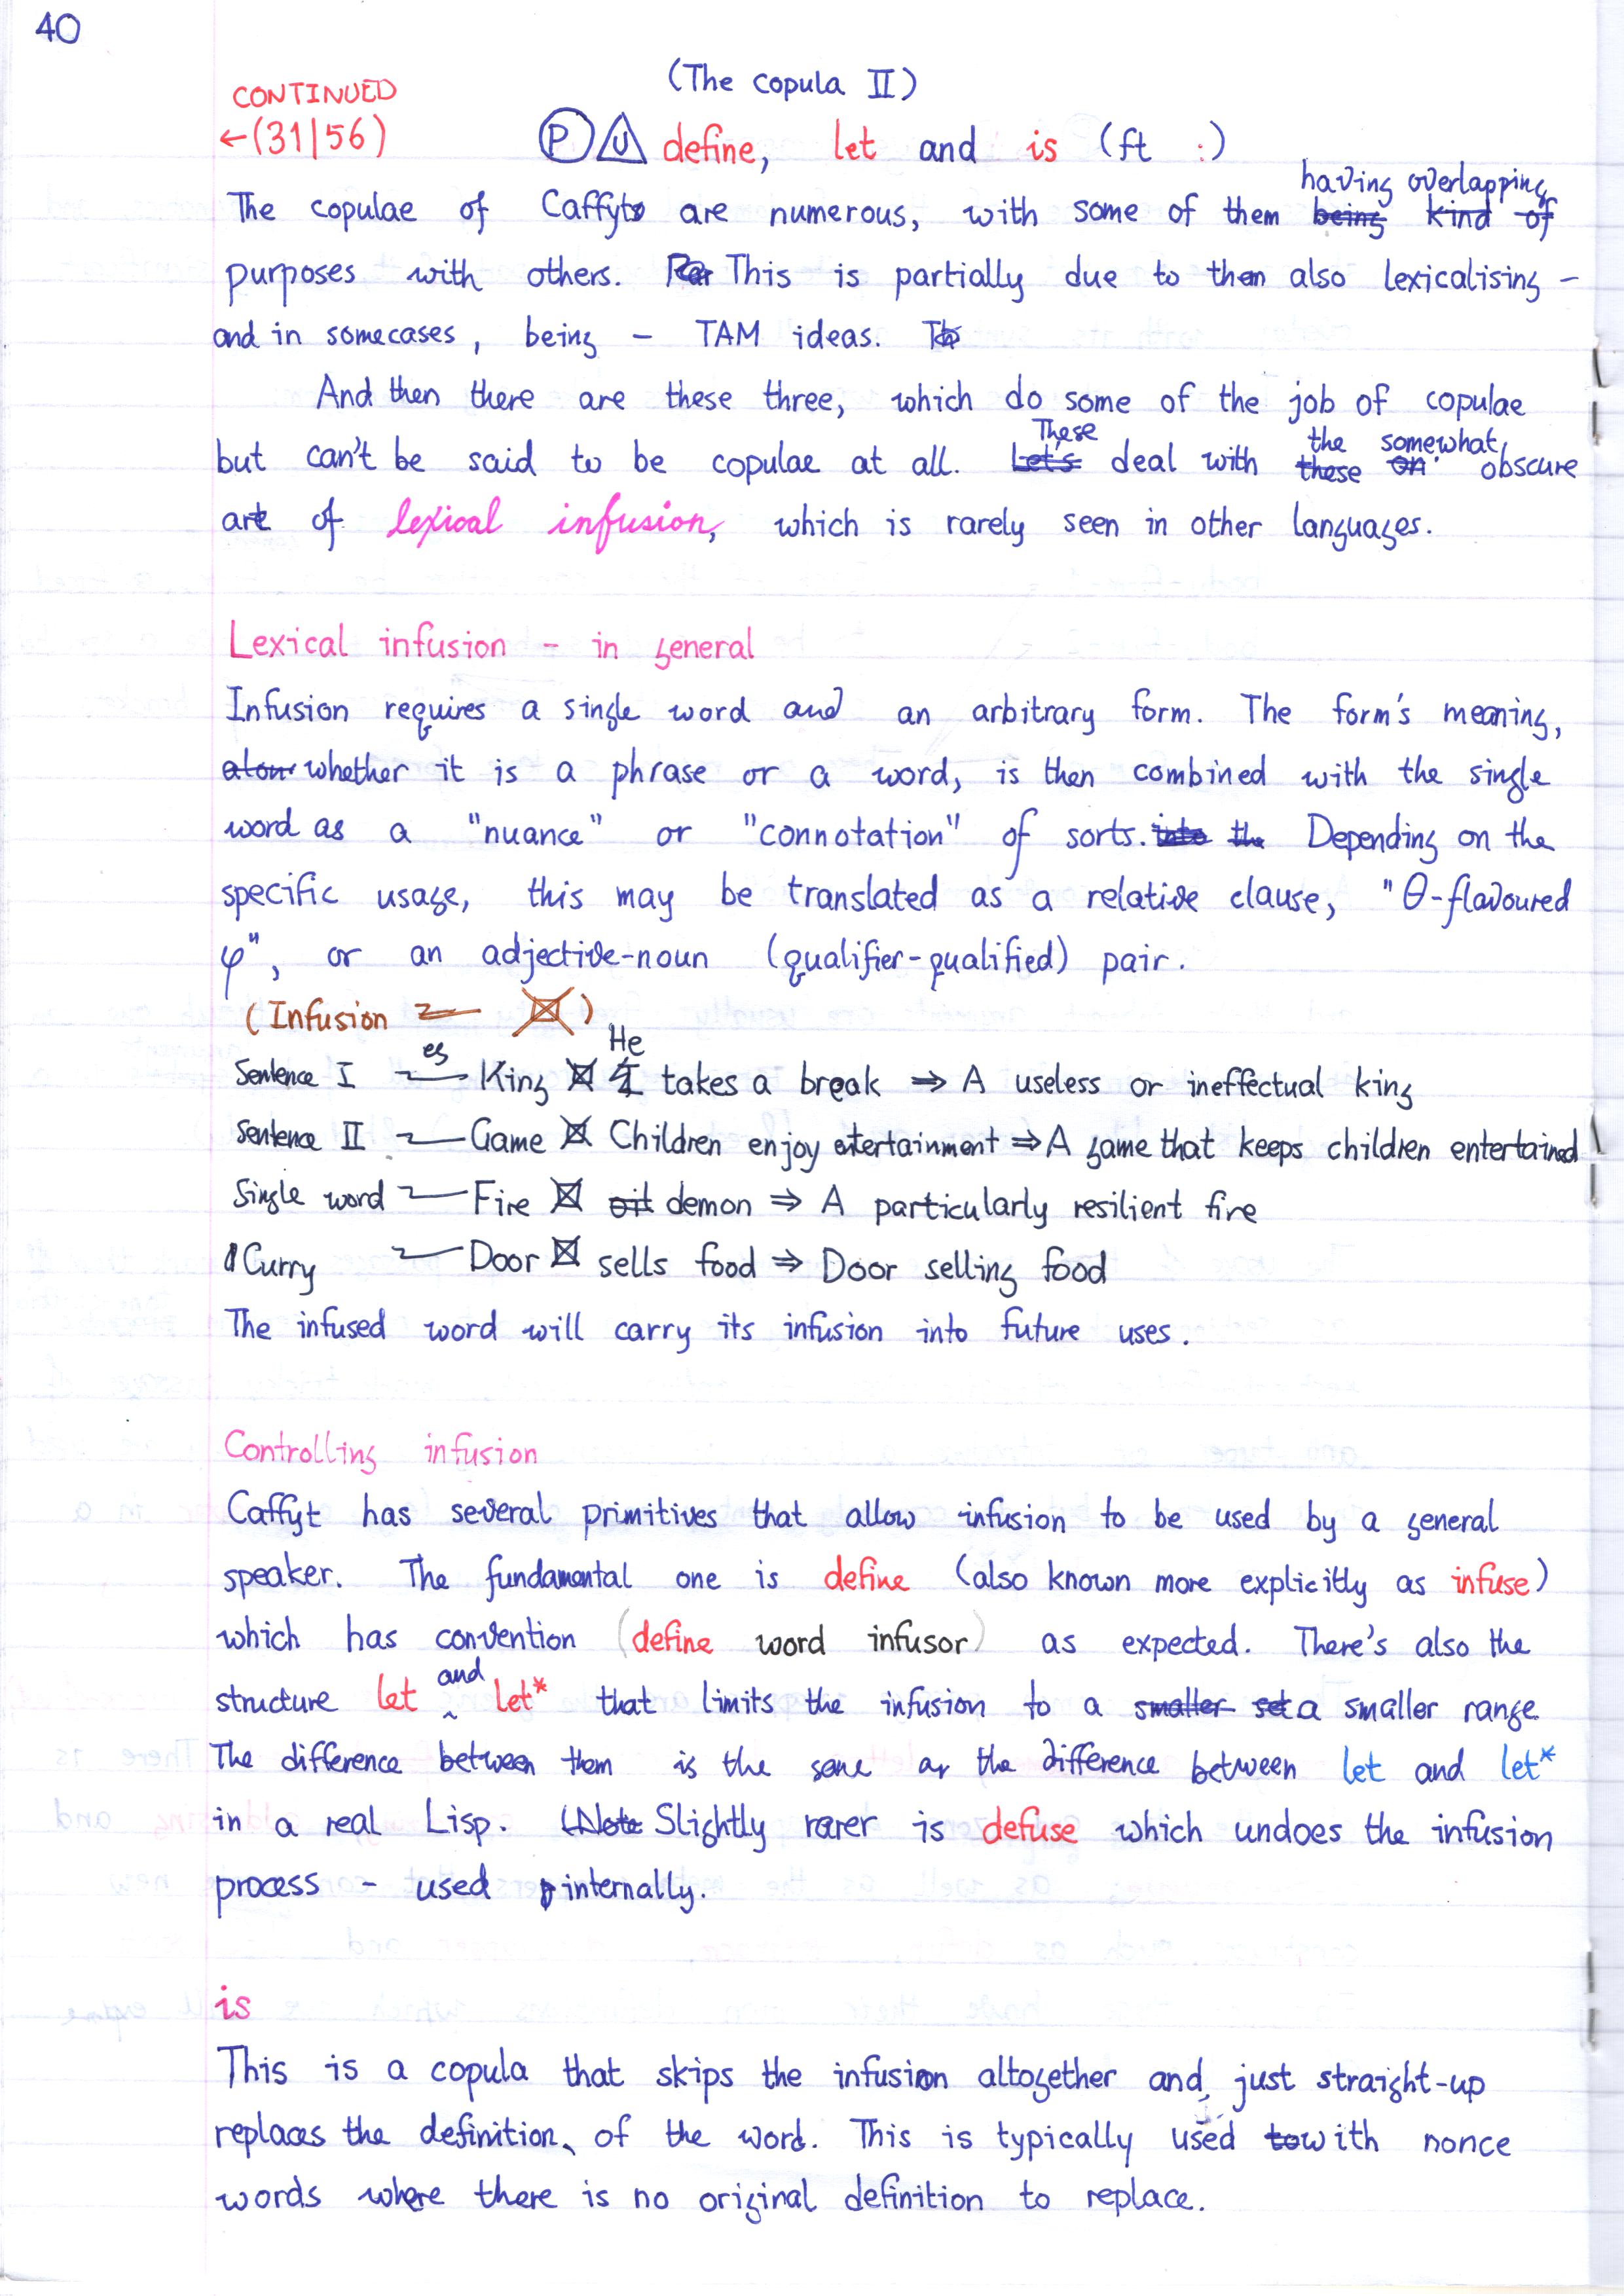 40
(The copula II)
CONTINUED
←(31|56)
Ⓟ U define, let and is (ft :)
having overlapping
The copulae of Caffyt are numerous, with some of them being kind of
purposes with others. This is partially due to them also lexicalising –
and in some cases, being – TAM ideas.
And then there are these three, which do some of the job of copulae
These the somewhat
but can't be said to be copulae at all. Let's deal with these on obscure
art of lexical infusion, which is rarely seen in other languages.
Lexical infusion – in general
Infusion requires a single word and an arbitrary form. The form's meaning,
whether it is a phrase or a word, is then combined with the single
word as a "nuance" or "connotation" of sorts. into the Depending on the
specific usage, this may be translated as a relative clause, "θ-flavoured
φ", or an adjective-noun (qualifier-qualified) pair.
(Infusion ⊠)
es He
Sentence I King ⊠ I takes a break ⇒ A useless or ineffectual king
Sentence II Game ⊠ Children enjoy entertainment ⇒ A game that keeps children entertained
Single word Fire ⊠ oil demon ⇒ A particularly resilient fire
Curry Door ⊠ sells food ⇒ Door selling food
The infused word will carry its infusion into future uses.
Controlling infusion
Caffyt has several primitives that allow infusion to be used by a general
speaker. The fundamental one is define (also known more explicitly as infuse)
which has convention (define word infusor) as expected. There's also the
and
structure let ^ let* that limits the infusion to a smaller set a smaller range
The difference between them is the same as the difference between let and let*
in a real Lisp. (Note Slightly rarer is defuse which undoes the infusion
process – used internally.
is
This is a copula that skips the infusion altogether and just straight-up
replaces the definition of the word. This is typically used to with nonce
words where there is no original definition to replace.